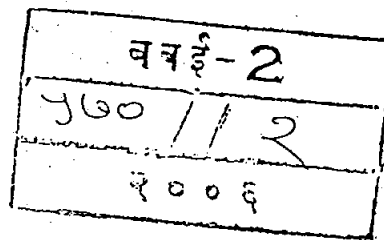 बबई-2
५७० // २
२००६